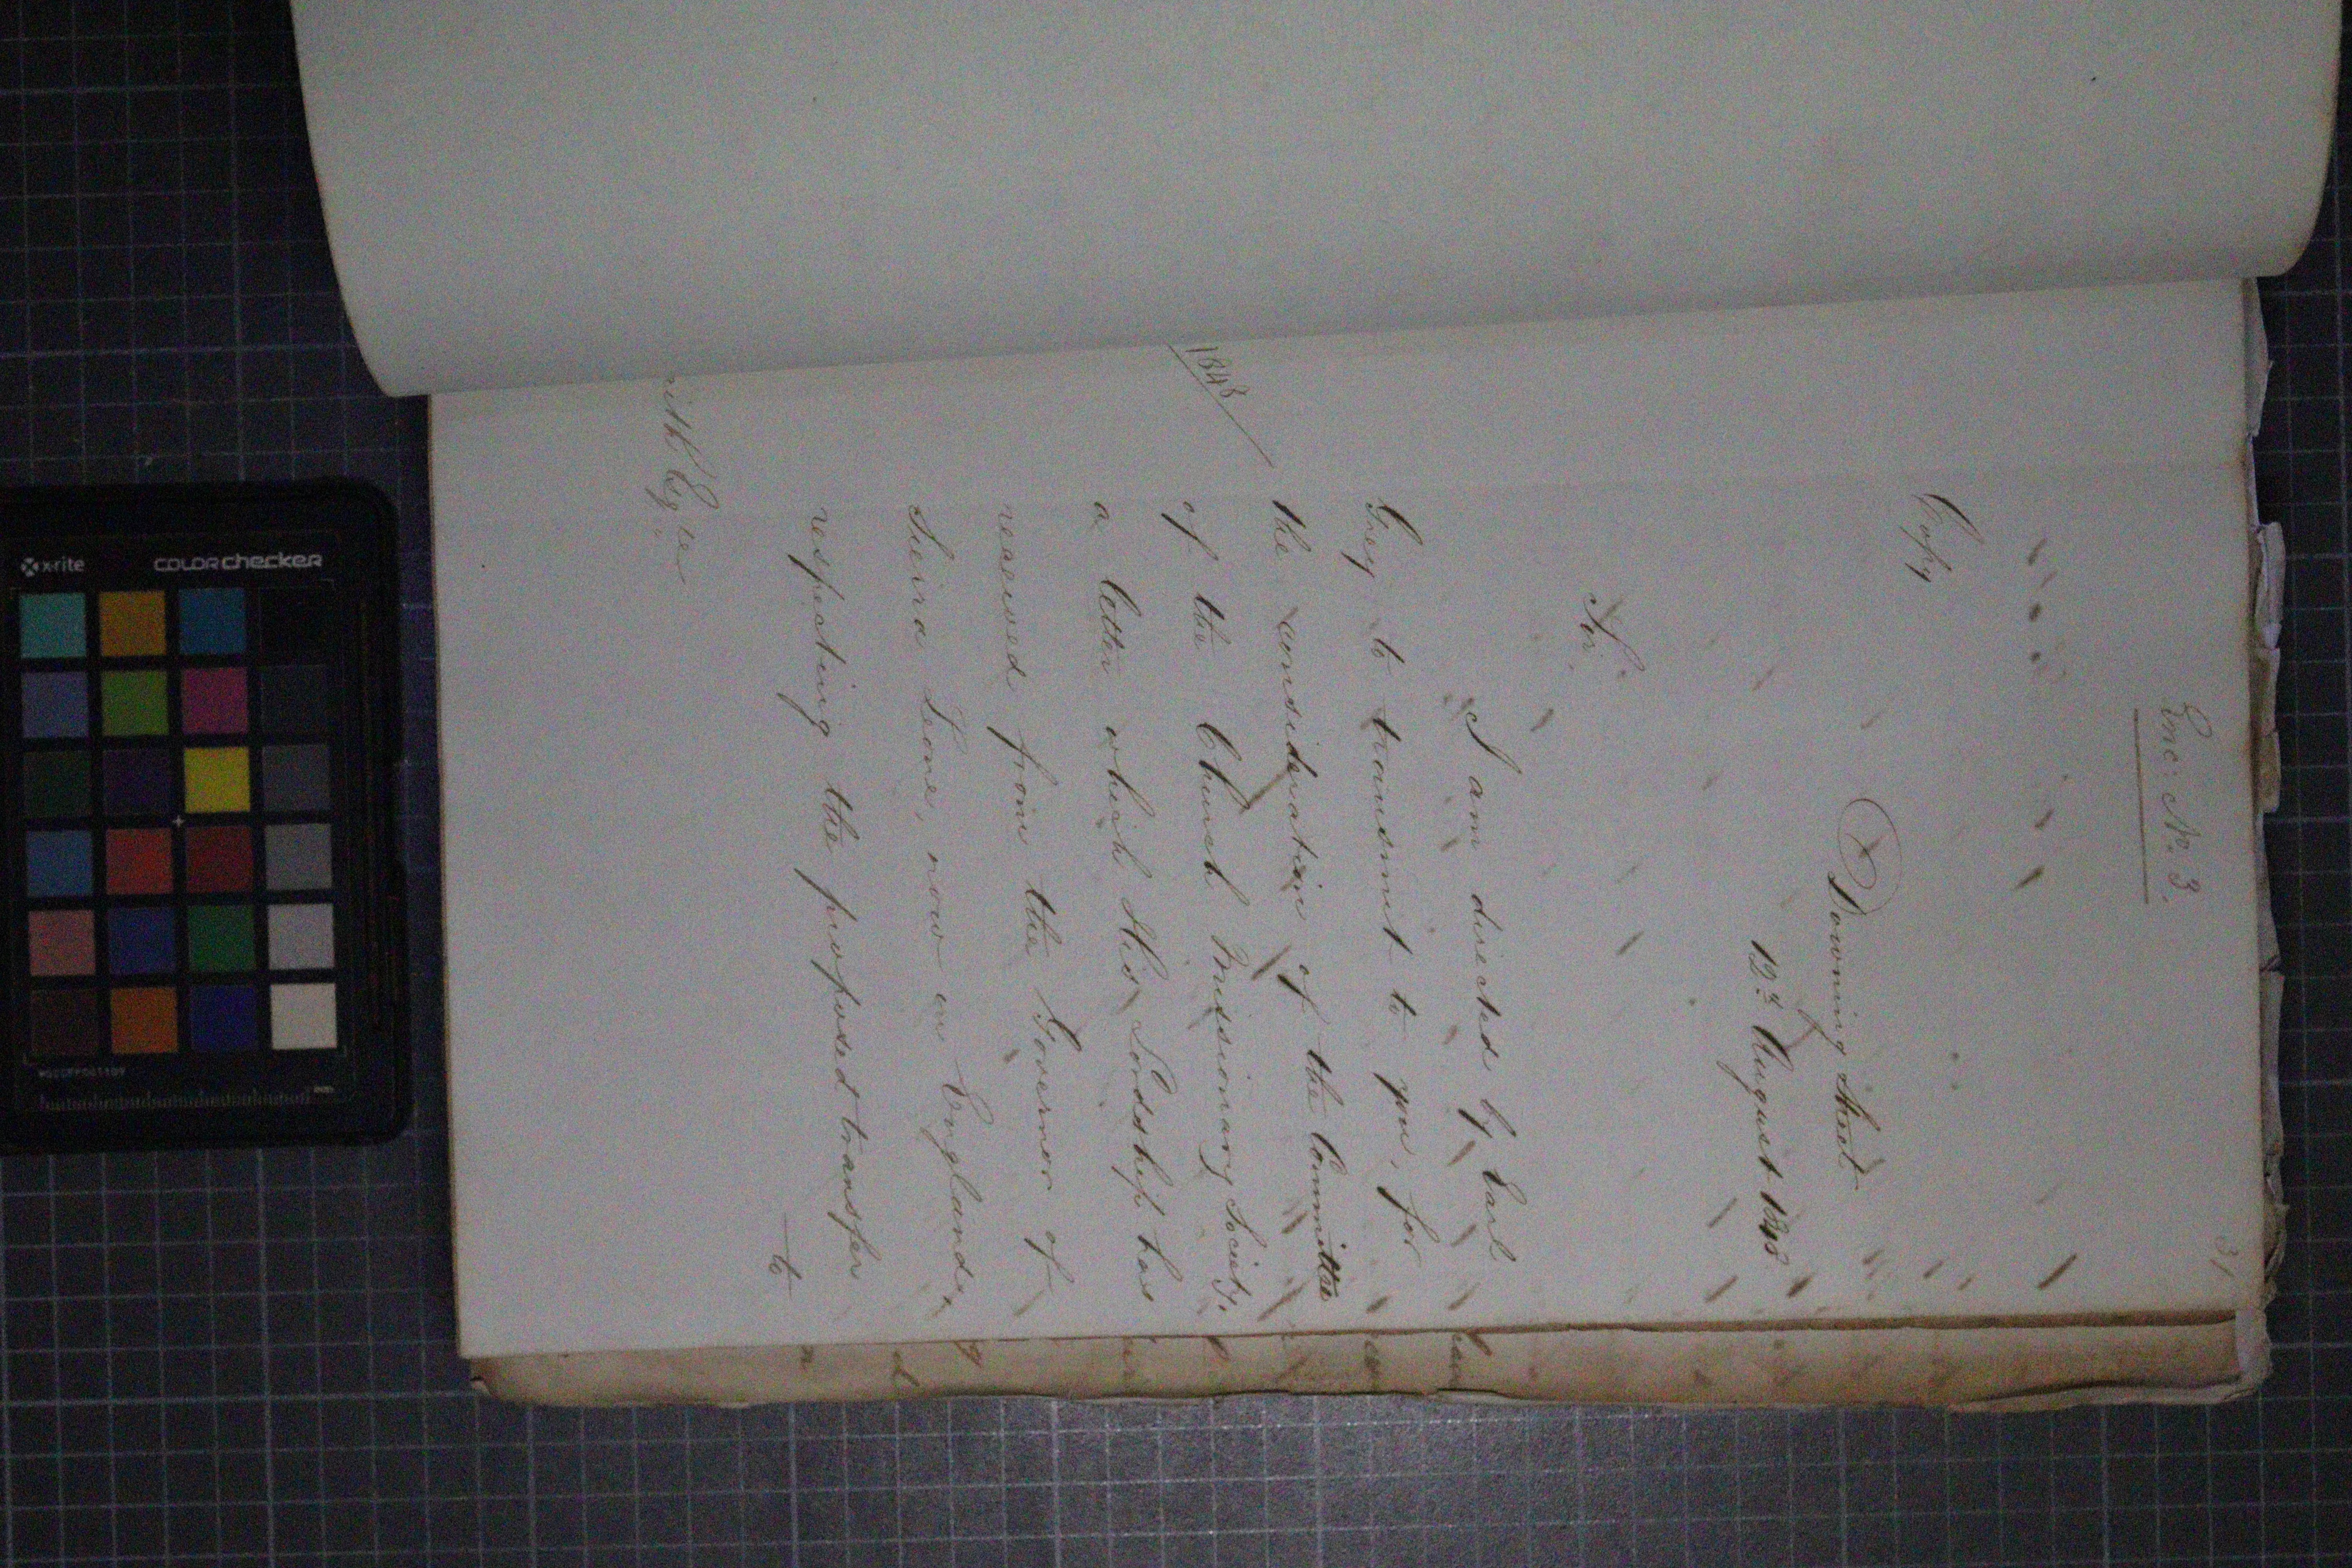 31
Enc: No. 3.
Copy
Downing Street
12th August 1848
Sir.
I am directed by Earl
Grey to transmit to you, for
the consideration of the Committee
of the Church Missionary Society,
a letter which His Lordship has
received from the Governor of
Sierra Leone, now in England,
respecting the proposed transfer
to
1848
Esqre
x-rite
colorchecker